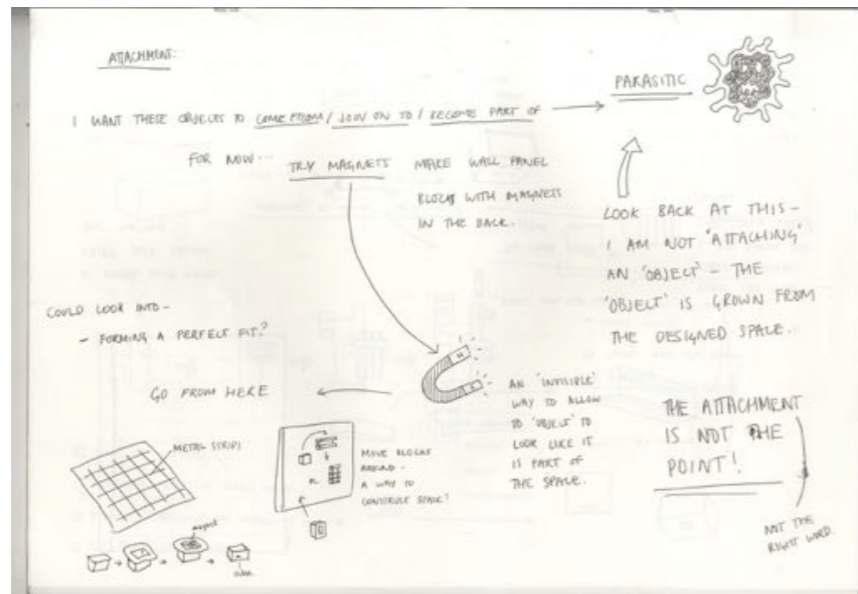 ATTACHMENT:
I WANT THESE OBJECTS TO COME FROM / JOIN ON TO / BECOME PART OF
PARASITIC
FOR NOW... TRY MAGNETS MAKE WALL PANEL
BLOCKS WITH MAGNETS
IN THE BACK.
LOOK BACK AT THIS -
I AM NOT 'ATTACHING'
AN 'OBJECT' - THE
'OBJECT' IS GROWN FROM
THE DESIGNED SPACE.
COULD LOOK INTO -
- FORMING A PERFECT FIT?
GO FROM HERE
N
S
AN 'INVISIBLE'
WAY TO ALLOW
TO 'OBJECT' TO
LOOK LIKE IT
IS PART OF
THE SPACE.
THE ATTACHMENT
IS NOT THE
POINT!
NOT THE
RIGHT WORD.
METAL STRIPS
MOVE BLOCKS
AROUND -
A WAY TO
CONSTRUCT SPACE?
OR
magnet